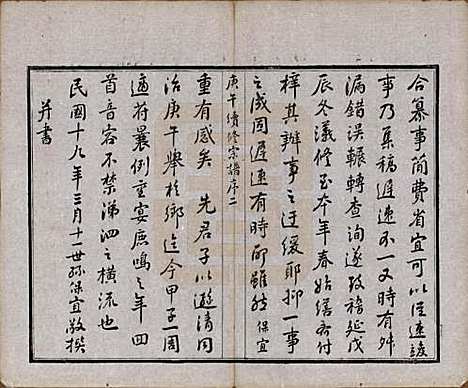 合纂事简費省宜可以從速竣
事乃集稿遲速不一又時有舛
漏錯誤輾轉查詢遂致稽延戊
辰冬議修至本年春始繕者付
梓其辦事之迂緩耶抑一事
之成固遲速有時耶雖然保宜
庚午續修宗譜序二
重有感矣 先君子以遜清同
治庚午舉於鄉迄今甲子一周
適符曩例重宴鹿鳴之年四
首音容不禁涕泗之橫流也
民國十九年三月十一世孫保宜敬撰
并書